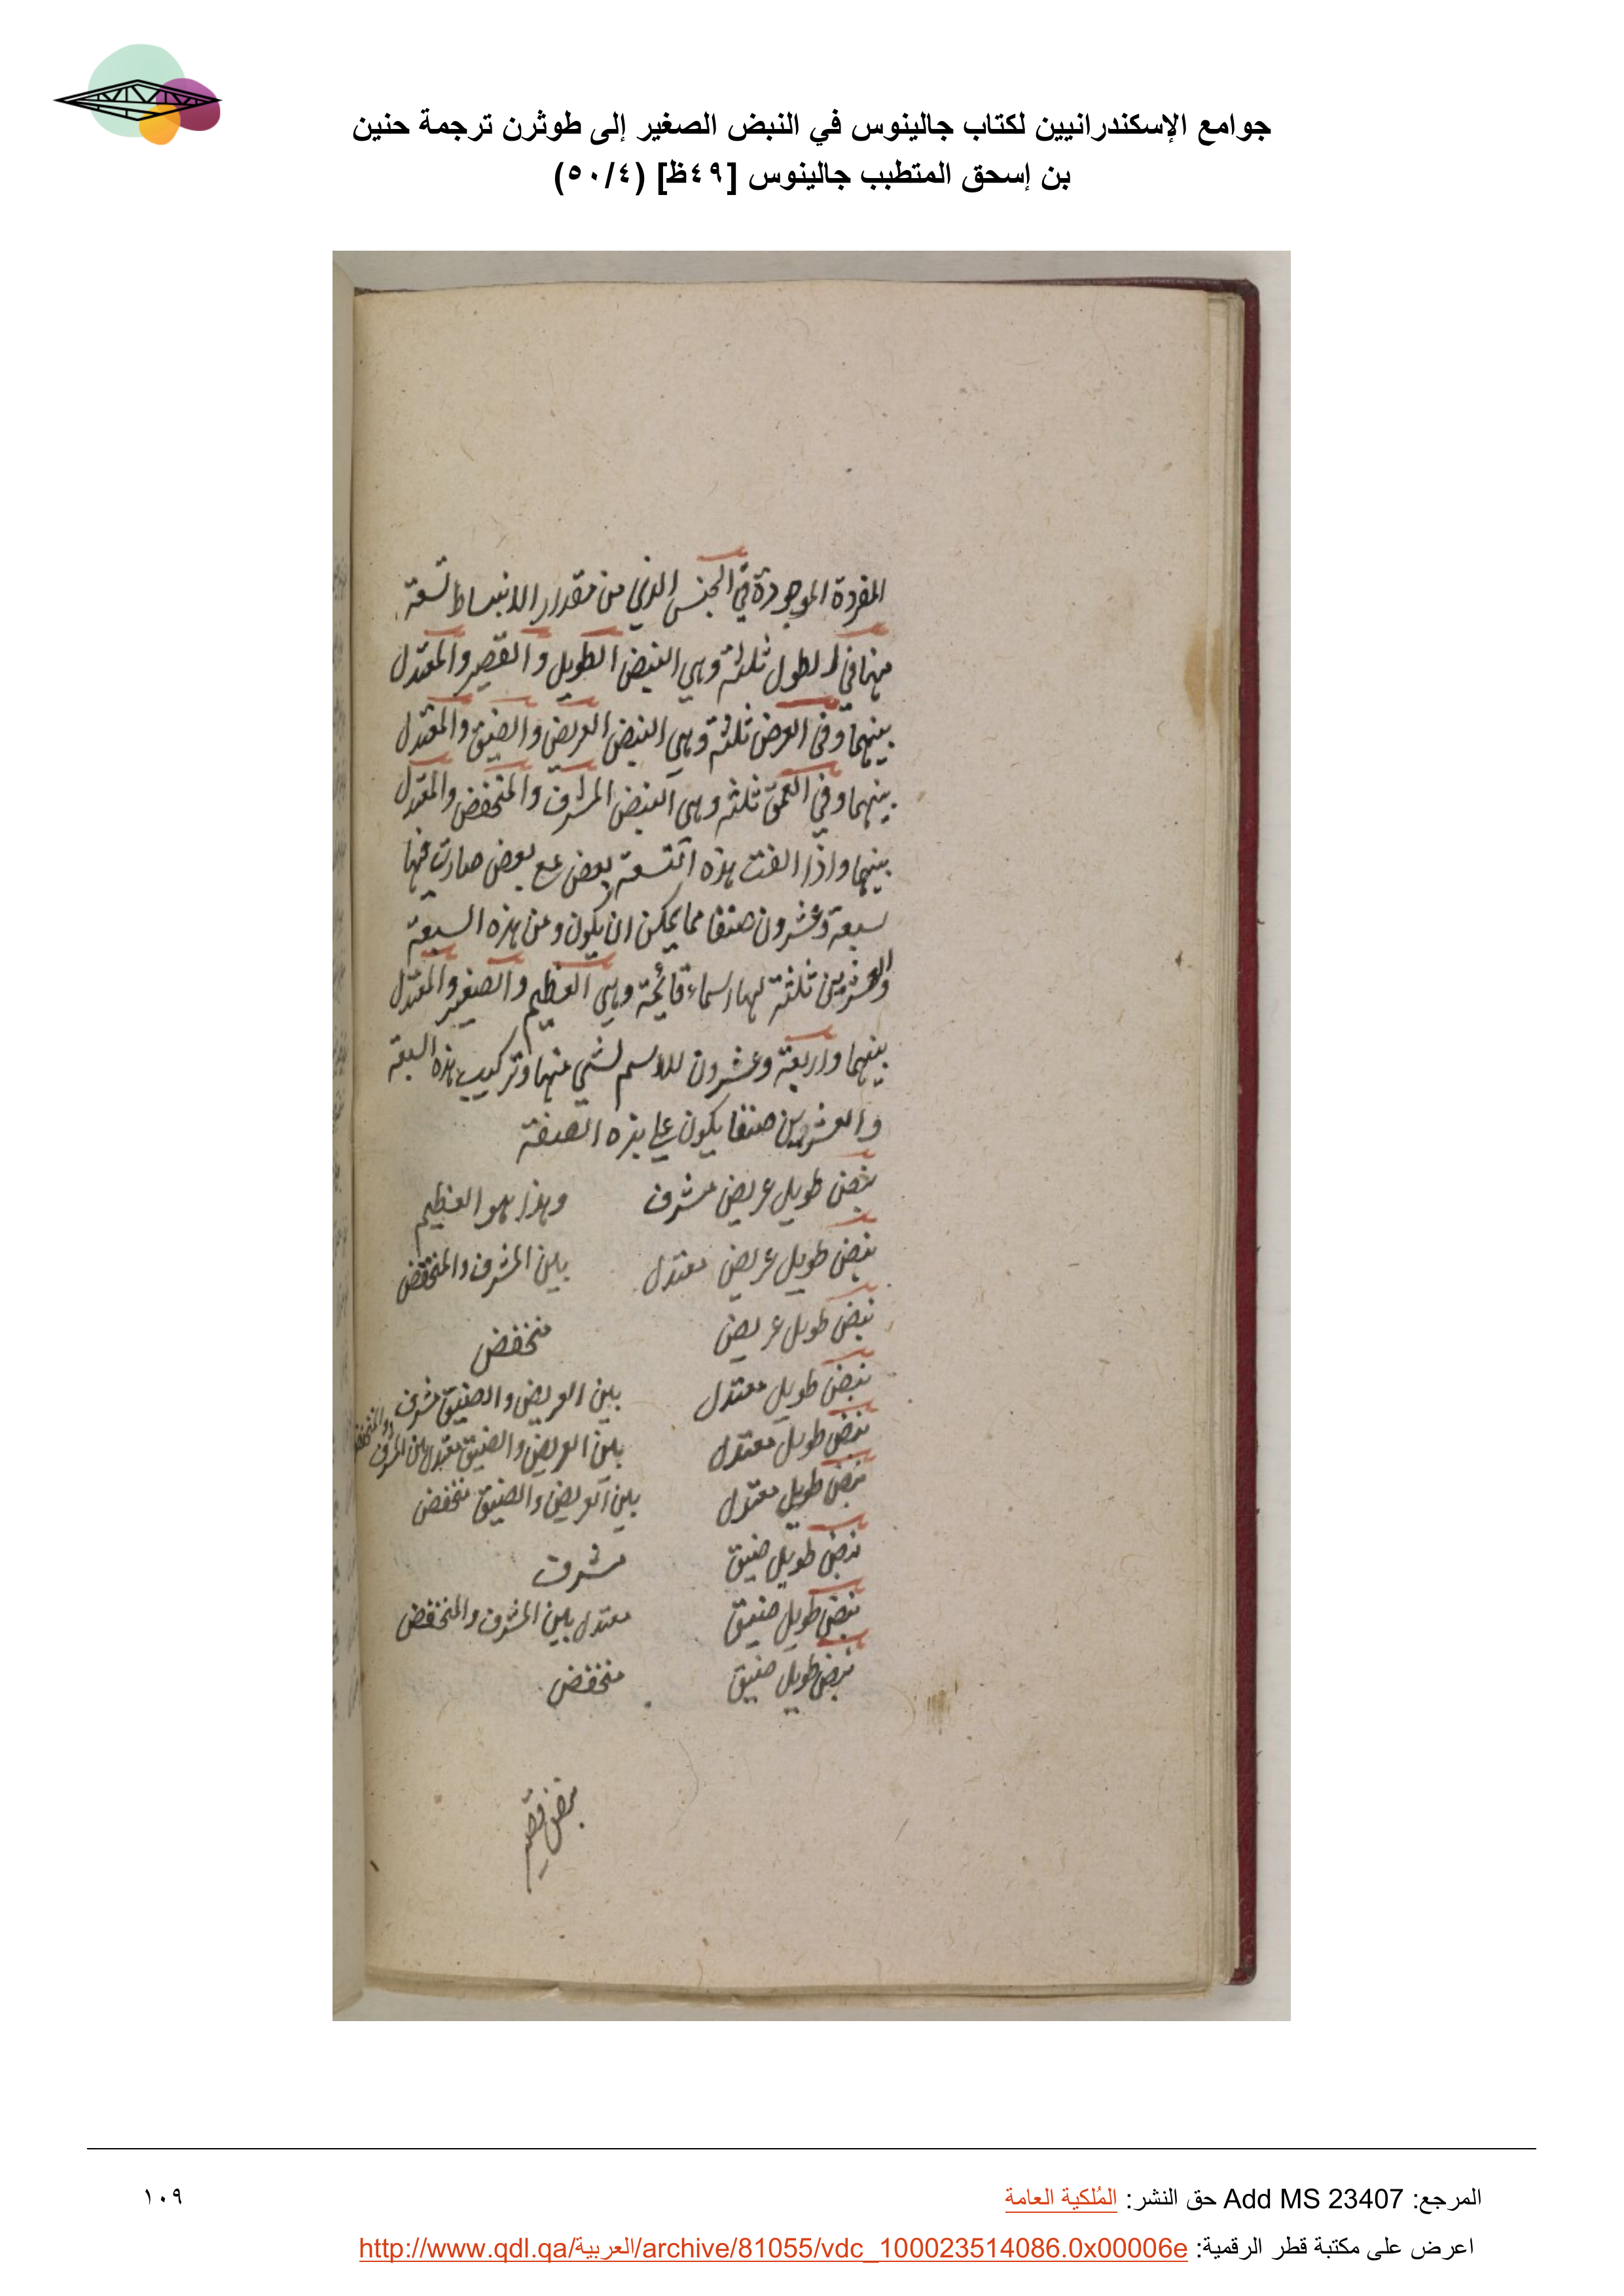 جوامع الإسكندرانيين لكتاب جالينوس في النبض الصغير إلى طوثرن ترجمة حنين
بن إسحق المتطبب جالينوس [٤٩ظ] (٥٠/٤)
المفردة الموجودة في الجنس الذي من مقدار الانبساط تسعة
منها في الطول ثلثة وهي النبض الطويل والقصير والمعتدل
بينهما وفي العرض ثلثة وهي النبض العريض والضيق والمعتدل
بينهما وفي العمق ثلثة وهي النبض المشرف والمنخفض والمعتدل
بينهما واذا الفت هذه التسعة بعض مع بعض صارت منها
سبعة وعشرون صنفا مما يمكن ان يكون ومن هذه السبعة
والعشرين ثلثة لها اسماء قائمة وهي العظيم والصغير والمعتدل
بينهما واربعة وعشرون لا اسم لشي منها وتركيب هذه السبعة
والعشرين صنفا يكون على هذه الصفة
نبض طويل عريض مشرف وهذا هو العظيم
نبض طويل عريض معتدل بين المشرف والمنخفض
نبض طويل عريض منخفض
نبض طويل معتدل بين العريض والضيق مشرف
نبض طويل معتدل بين العريض والضيق معتدل بين المشرف والمنخفض
نبض طويل معتدل بين العريض والضيق منخفض
نبض طويل ضيق مشرف
نبض طويل ضيق معتدل بين المشرف والمنخفض
نبض طويل ضيق منخفض
نبض قصير
المرجع: Add MS 23407 حق النشر: المُلكية العامة
١٠٩
اعرض على مكتبة قطر الرقمية: http://www.qdl.qa/العربية/archive/81055/vdc_100023514086.0x00006e